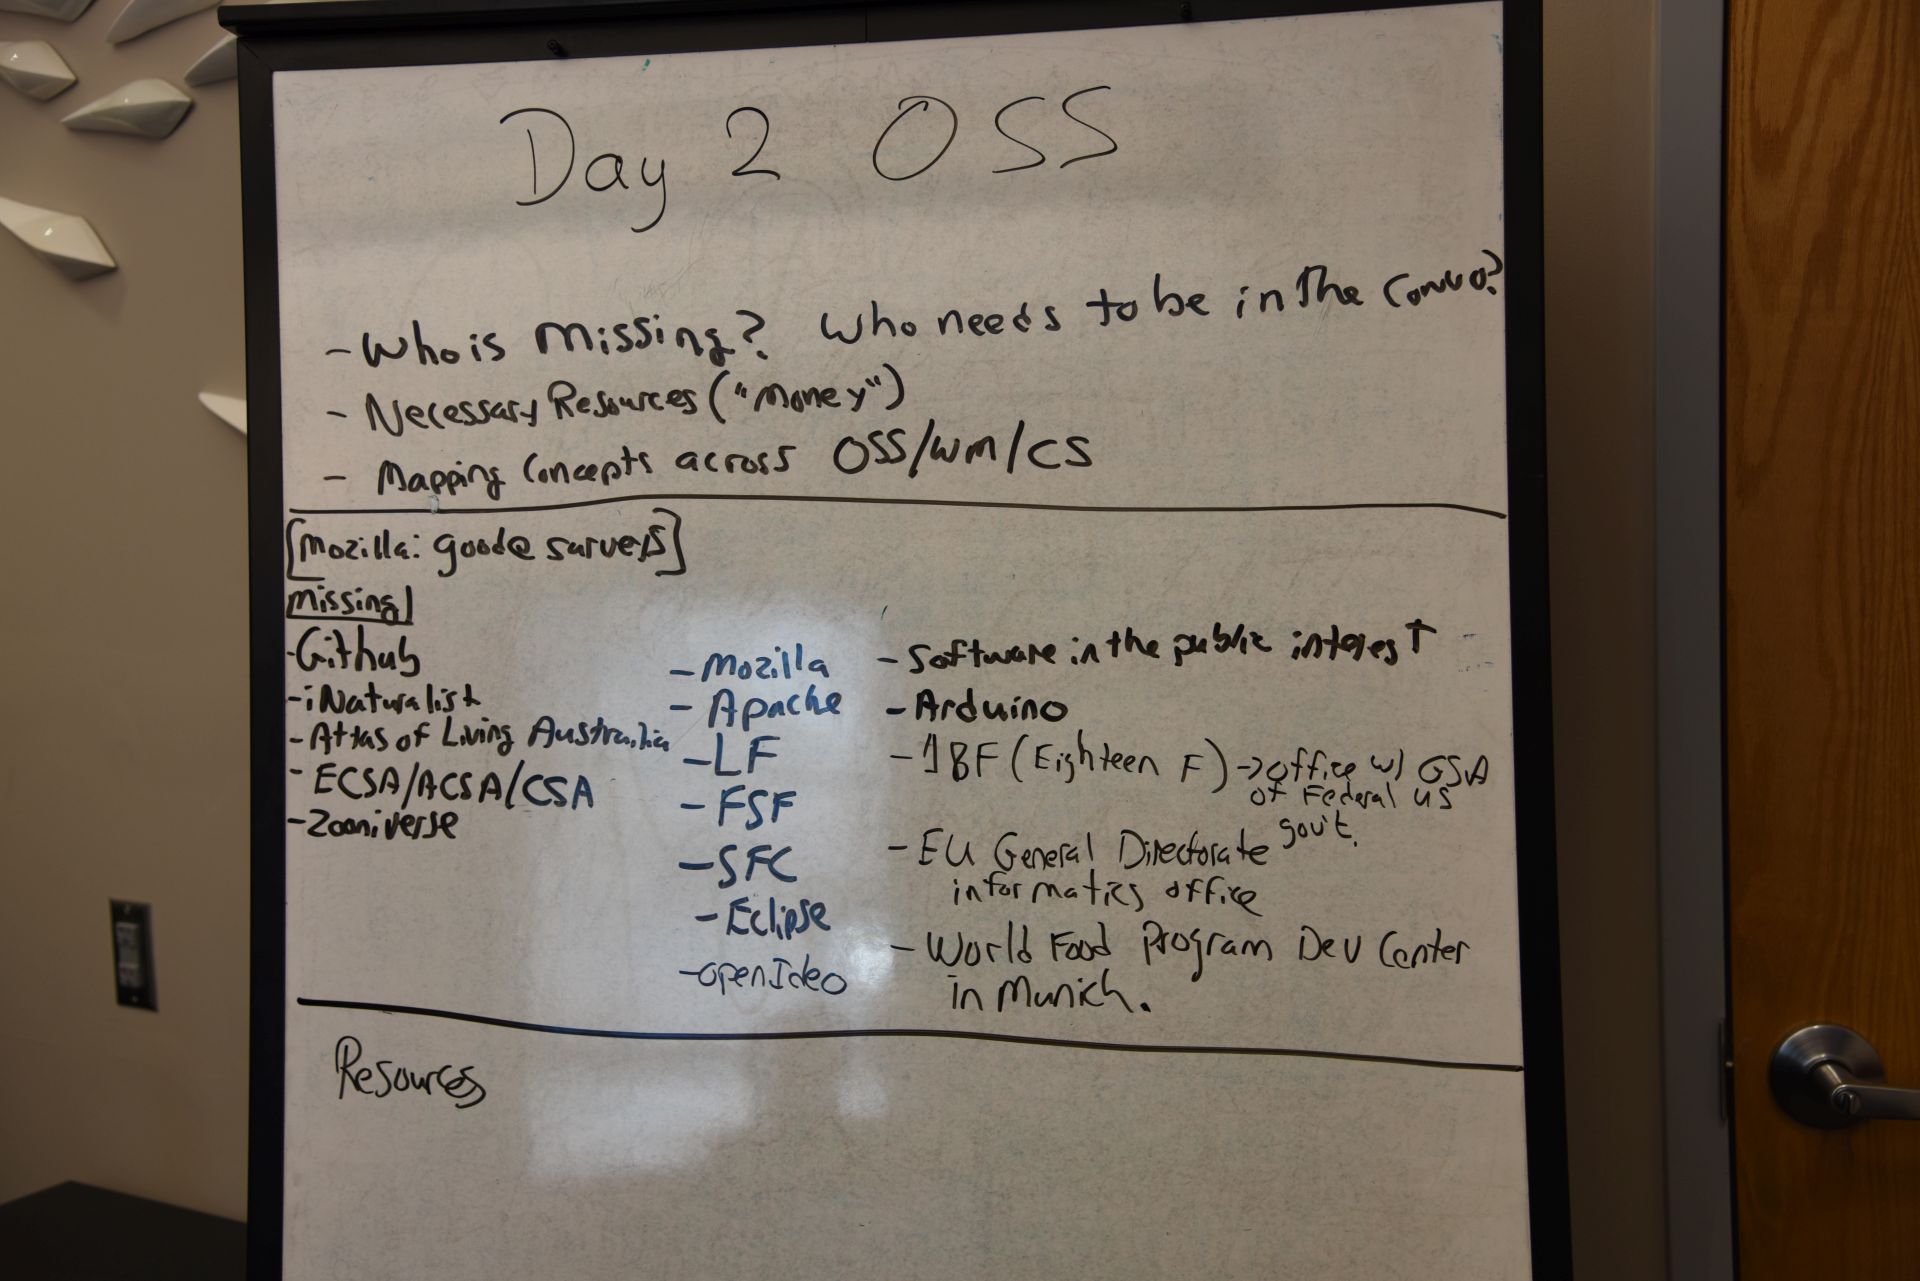 Day 2 OSS
- Who is missing? Who needs to be in the convo?
- Necessary Resources ("money")
- Mapping Concepts across OSS/WM/CS
[Mozilla: good@ surveys]
Missing
- Github
- iNaturalist
- Atlas of Living Australia
- ECSA/ACSA/CSA
- Zooniverse
- Mozilla
- Apache
- LF
- FSF
- SFC
- Eclipse
- openIdeo
- Software in the public interest
- Arduino
- 18F (Eighteen F) → office w/ GSA
of Federal US
gov't.
- EU General Directorate
informatics office
- World Food Program Dev Center
in Munich.
Resources